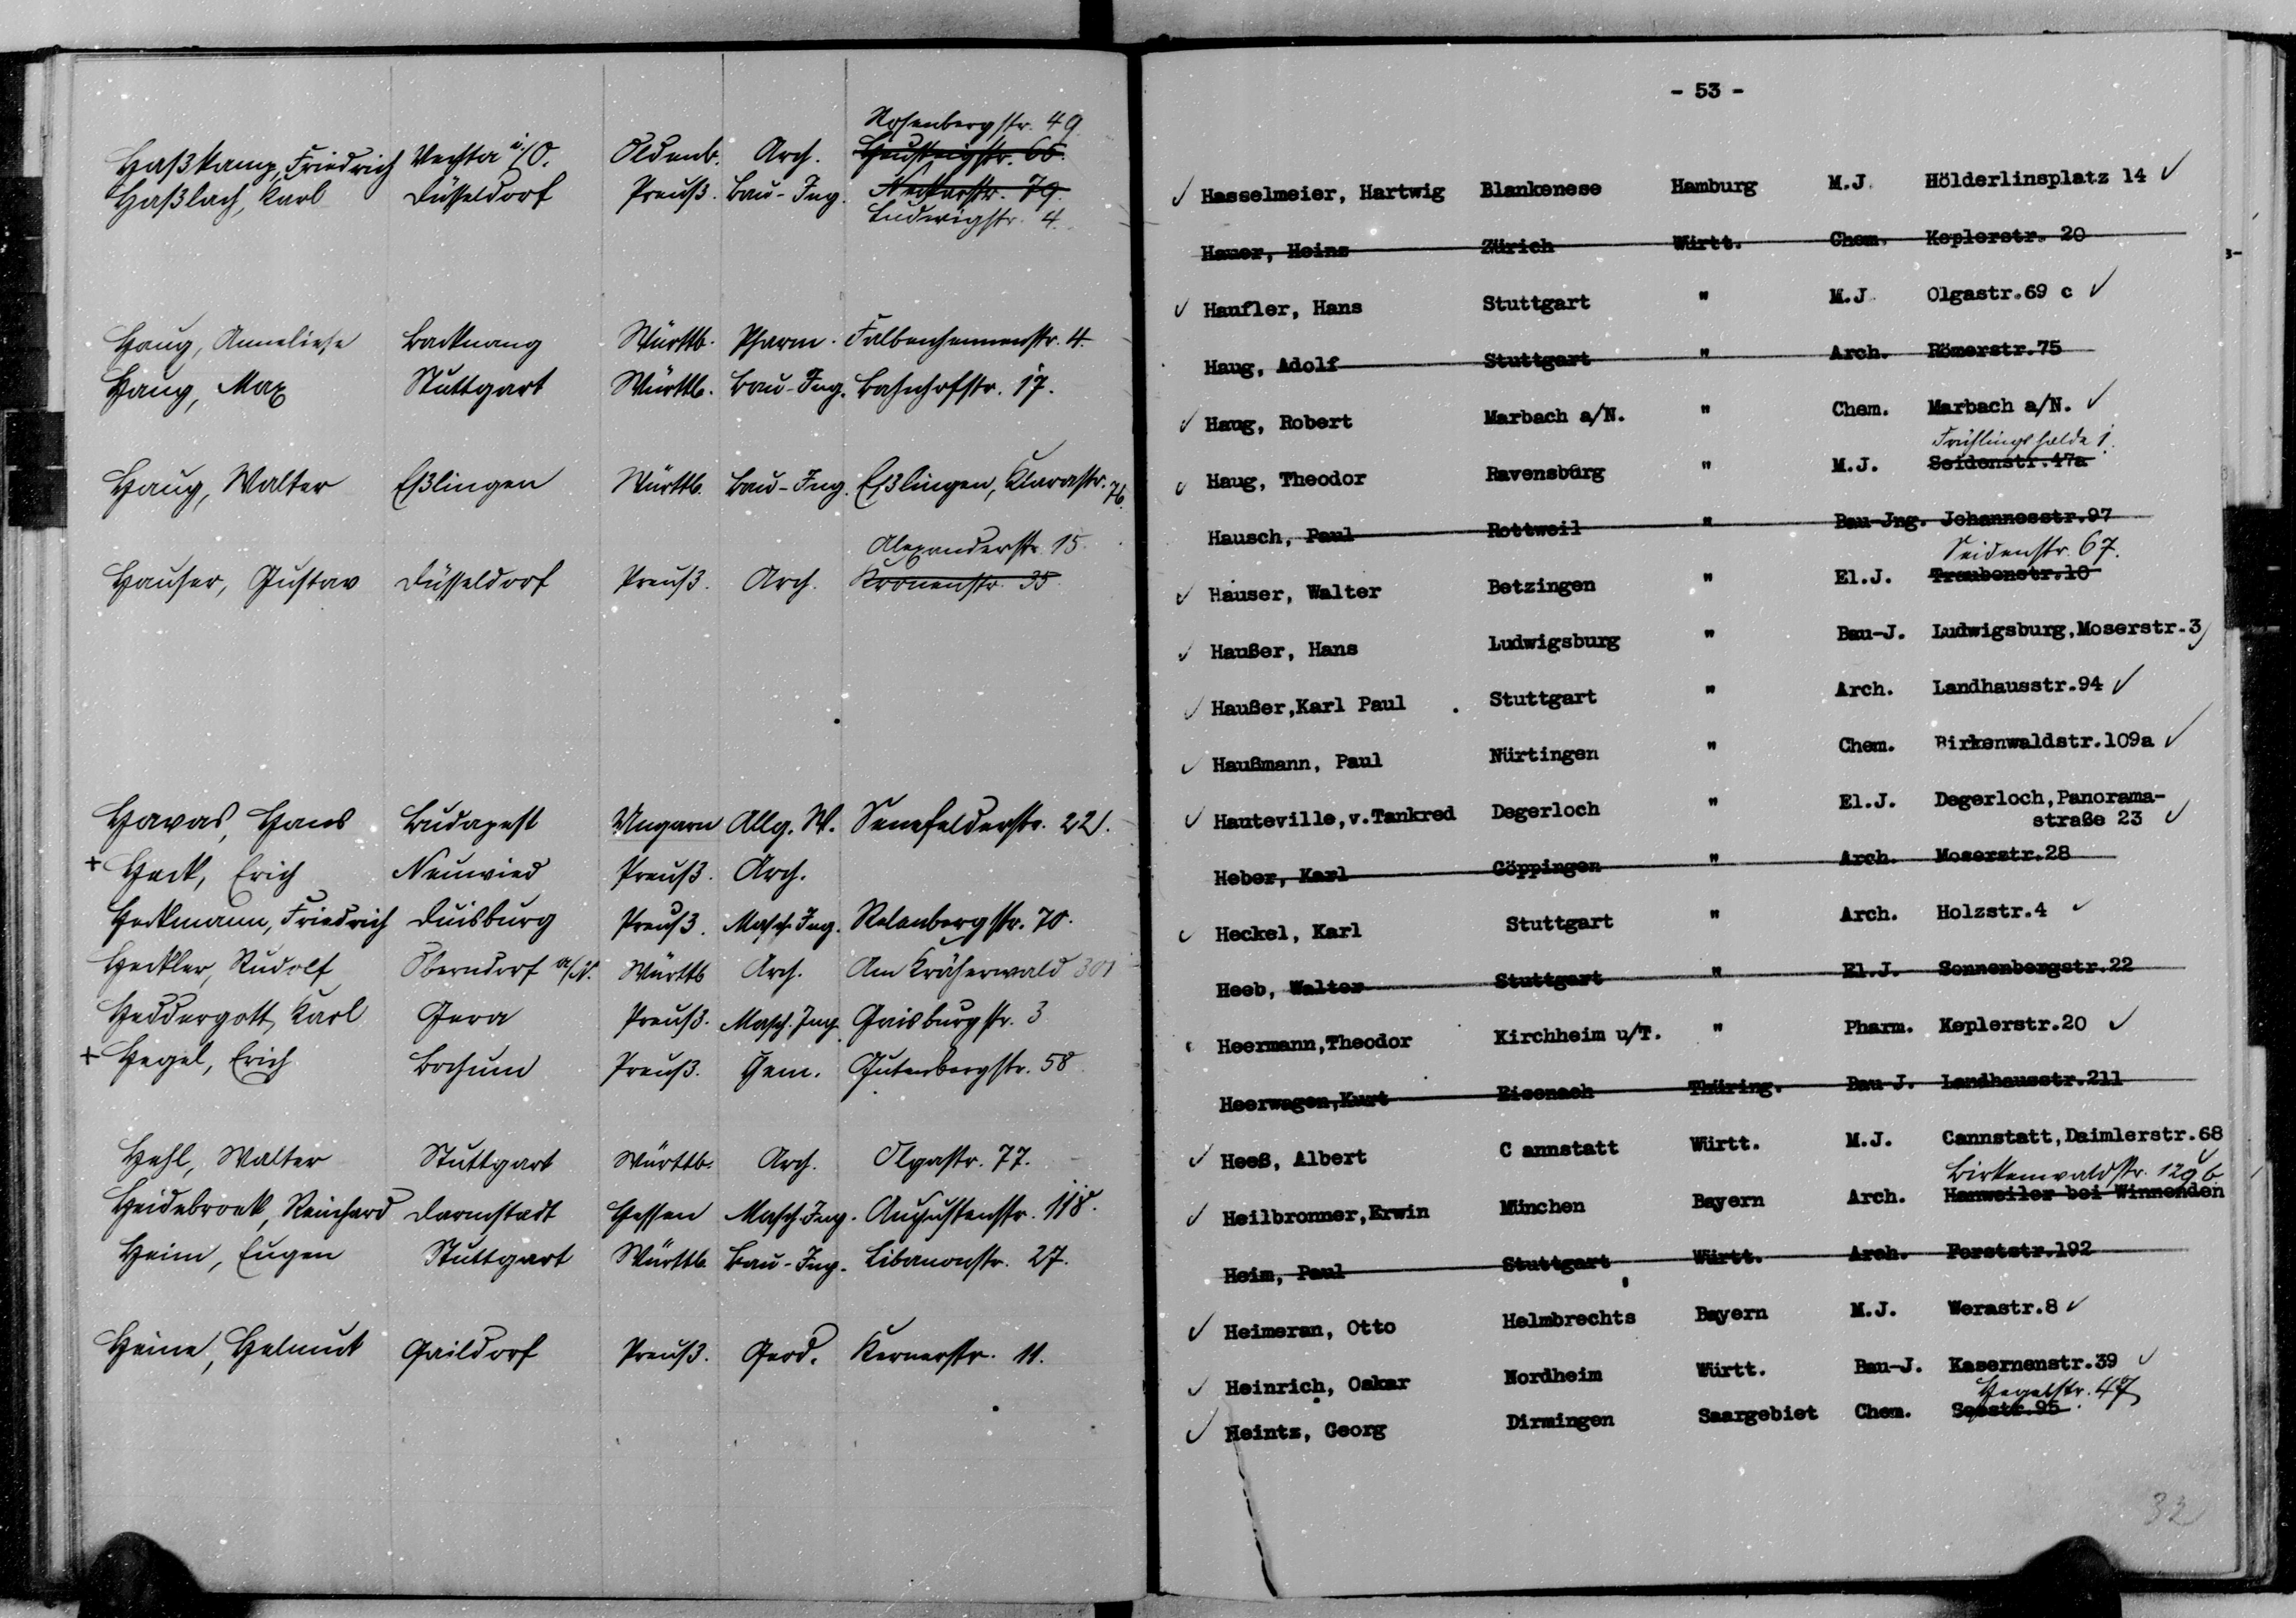 Rosenbergstr. 49
Haßkamp, Friedrich Vechta i/O. Oldenb. Arch. Heusteigstr. 66.
Haßlach, Karl Düsseldorf Preuß. Bau-Ing. Neckarstr. 79.
Ludwigstr. 4.
Haug, Anneliese Backnang Württb. Pharm. Falbenhennenstr. 4.
Haug, Max Stuttgart Württb. Bau-Ing. Bahnhofstr. 17.
Haug, Walter Eßlingen Württb. Bau-Ing. Eßlingen, Klarastr. 76.
Alexanderstr. 15.
Hauser, Gustav Düsseldorf Preuß. Arch. Kronenstr. 35
Havas, Hans Budapest Ungarn Allg. W. Senefelderstr. 22
+ Heck, Erich Neuwied Preuß. Arch.
Heckmann, Friedrich Duisburg Preuß. Masch. Ing. Relenbergstr. 70.
Heckler, Rudolf Oberndorf a/N. Württb Arch. Am Kräherwald 301
Heddergott, Karl Gera Preuß. Masch. Ing. Gaisburgstr. 3
+ Hegel, Erich Bochum Preuß. Gem. Gutenbergstr. 58
Hehl, Walter Stuttgart Württb. Arch. Olgastr. 77.
Heidebroek, Reinhard Darmstadt Hessen Masch-Ing. Augustenstr. 118.
Heim, Eugen Stuttgart Württb. Bau-Ing. Libanonstr. 27.
Heine, Helmut Gaildorf Preuß. Geod. Kernerstr. 11.
- 53 -
✓ Hasselmeier, Hartwig Blankenese Hamburg M.J. Hölderlinsplatz 14 ✓
Hauer, Heinz Zürich Württ. Chem. Keplerstr. 20
✓ Haufler, Hans Stuttgart " M.J. Olgastr.69 c ✓
Haug, Adolf Stuttgart " Arch. Römerstr.75
✓ Haug, Robert Marbach a/N. " Chem. Marbach a/N. ✓
Frühlingshalde 1.
✓ Haug, Theodor Ravensburg " M.J. Seidenstr.47a
Hausch, Paul Rottweil " Bau-Jng. Johannesstr.97
Seidenstr. 67.
✓ Hauser, Walter Betzingen " El.J. Traubenstr.10
✓ Haußer, Hans Ludwigsburg " Bau-J. Ludwigsburg,Moserstr.3
✓ Haußer,Karl Paul Stuttgart " Arch. Landhausstr.94 ✓
✓ Haußmann, Paul Nürtingen " Chem. Birkenwaldstr.109a ✓
✓ Hauteville,v.Tankred Degerloch " El.J. Degerloch,Panorama-
straße 23 ✓
Heber, Karl Göppingen " Arch. Moserstr.28
✓ Heckel, Karl Stuttgart " Arch. Holzstr.4 ✓
Heeb, Walter Stuttgart " El.J. Sonnenbergstr.22
Heermann,Theodor Kirchheim u/T. " Pharm. Keplerstr.20 ✓
Heerwagen,Kurt Eisenach Thüring. Bau-J. Landhausstr.211
✓ Heeß, Albert C annstatt Württ. M.J. Cannstatt,Daimlerstr.68
Birkenwaldstr. 129 b
✓ Heilbronner,Erwin München Bayern Arch. Hanweiler bei Winnenden
Heim, Paul Stuttgart Württ. Arch. Forststr.192
✓ Heimeran, Otto Helmbrechts Bayern M.J. Werastr.8 ✓
✓ Heinrich, Oskar Nordheim Württ. Bau-J. Kasernenstr.39 ✓
Hegelstr. 47
✓ Heintz, Georg Dirmingen Saargebiet Chem. Seestr.95
32